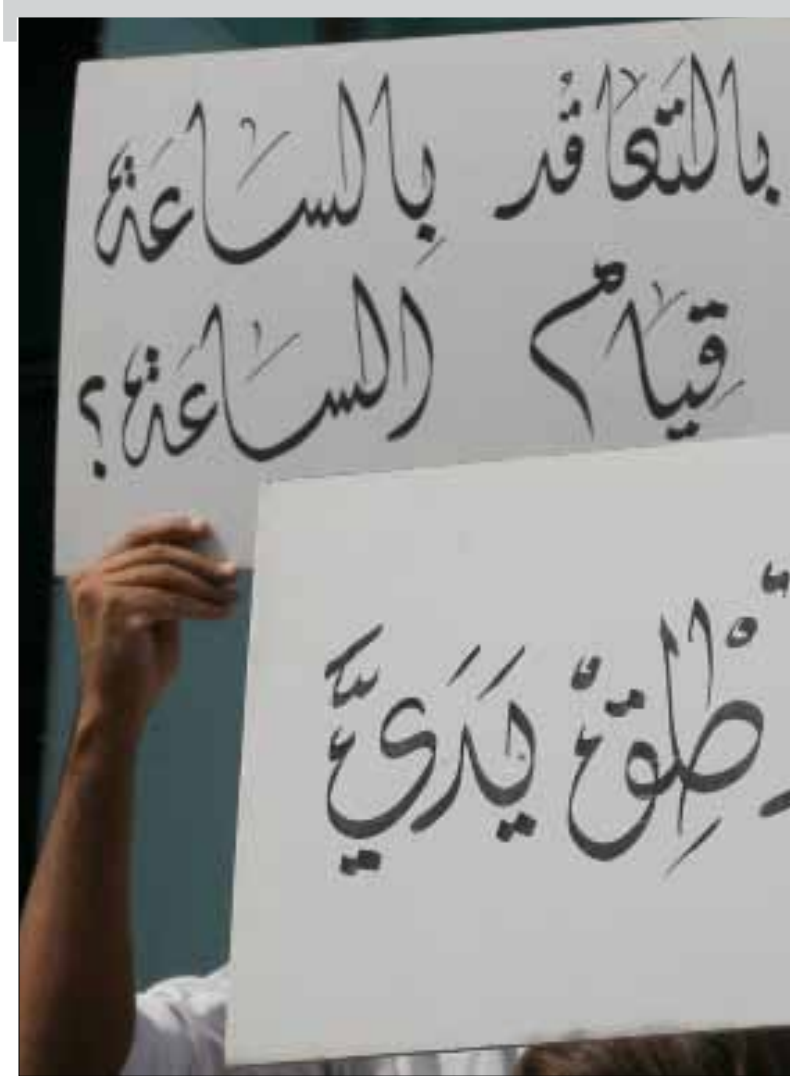 بالتَعاقُد بِالسَاعَةْ
قِيَام السَاعَةْ؟
طْلِقْ يَدَيَّ